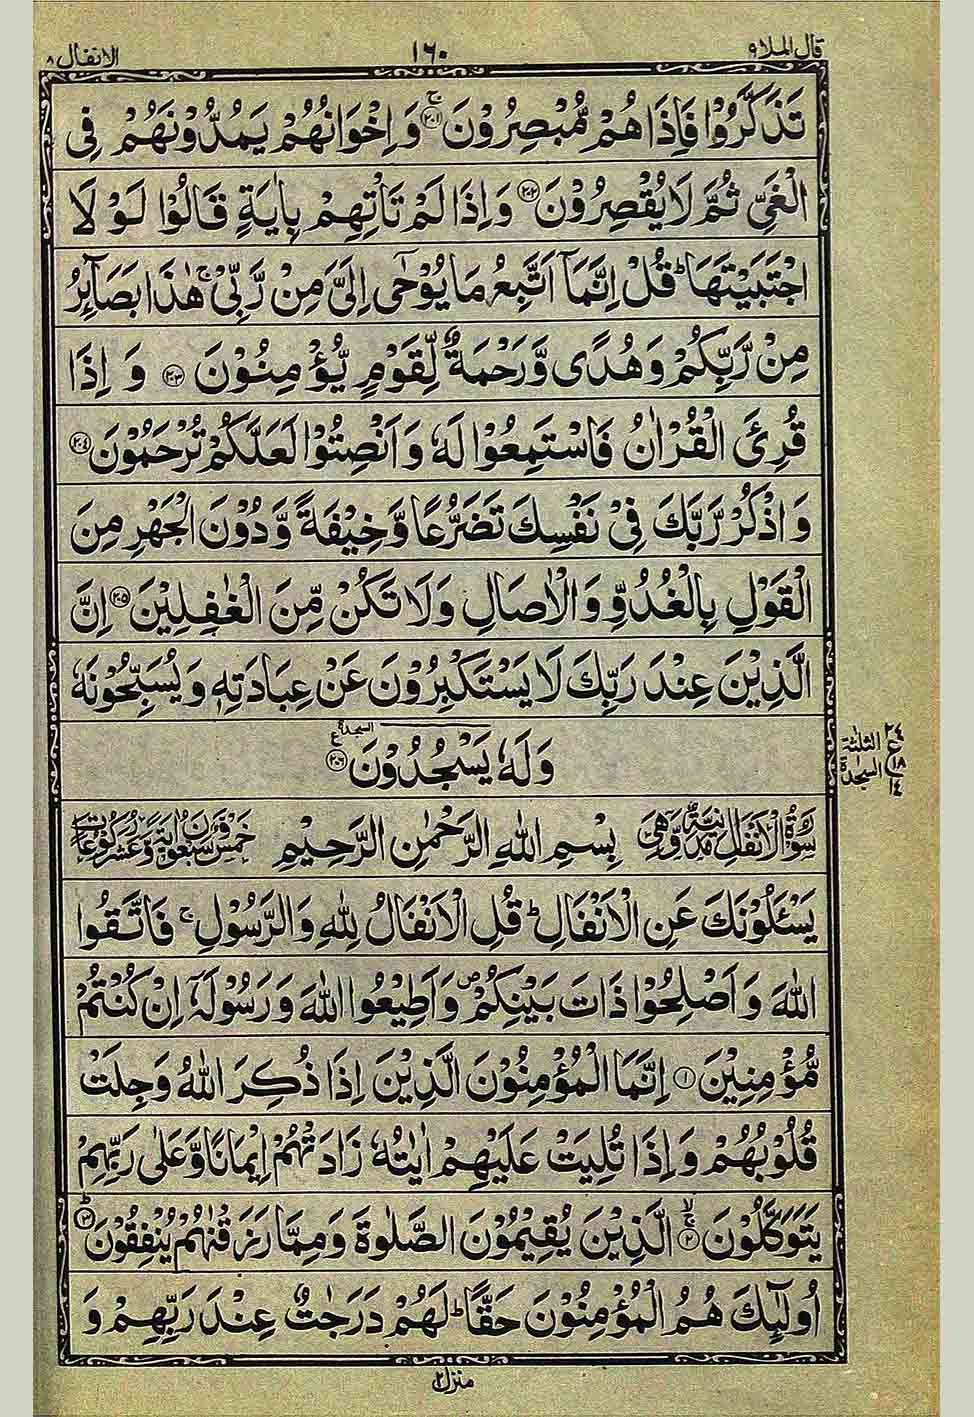 قال الملا ٩
١٦٠
الانفال ٨
تَذَكَّرُوْا فَاِذَا هُمْ مُّبْصِرُوْنَ ۚ﴿٢٠١﴾ وَ اِخْوَانُهُمْ يَمُدُّوْنَهُمْ فِى
الْغَىِّ ثُمَّ لَا يُقْصِرُوْنَ ﴿٢٠٢﴾ وَ اِذَا لَمْ تَاْتِهِمْ بِاٰيَةٍ قَالُوْا لَوْ لَا
اجْتَبَيْتَهَا ؕ قُلْ اِنَّمَاۤ اَتَّبِعُ مَا يُوْحٰۤى اِلَىَّ مِنْ رَّبِّىْ ۚ هٰذَا بَصَآئِرُ
مِنْ رَّبِّكُمْ وَ هُدًى وَّ رَحْمَةٌ لِّقَوْمٍ يُّؤْمِنُوْنَ ﴿٢٠٣﴾ وَ اِذَا
قُرِئَ الْقُرْاٰنُ فَاسْتَمِعُوْا لَهٗ وَ اَنْصِتُوْا لَعَلَّكُمْ تُرْحَمُوْنَ ﴿٢٠٤﴾
وَ اذْكُرْ رَّبَّكَ فِىْ نَفْسِكَ تَضَرُّعًا وَّ خِيْفَةً وَّ دُوْنَ الْجَهْرِ مِنَ
الْقَوْلِ بِالْغُدُوِّ وَ الْاٰصَالِ وَ لَا تَكُنْ مِّنَ الْغٰفِلِيْنَ ﴿٢٠٥﴾ اِنَّ
الَّذِيْنَ عِنْدَ رَبِّكَ لَا يَسْتَكْبِرُوْنَ عَنْ عِبَادَتِهٖ وَ يُسَبِّحُوْنَهٗ
وَ لَهٗ يَسْجُدُوْنَ ﴿٢٠٦﴾ السجدة ع
٢٤
ع ١٨ الثلثة
١٤ السجدة
سُوْرَةُ الْاَنْفَالِ مَدَنِيَّةٌ وَّهِىَ بِسْمِ اللهِ الرَّحْمٰنِ الرَّحِيْمِ خَمْسٌ وَّ سَبْعُوْنَ اٰيَةً وَّ عَشْرُ رُكُوْعَاتٍ
يَسْـَٔلُوْنَكَ عَنِ الْاَنْفَالِ ؕ قُلِ الْاَنْفَالُ لِلّٰهِ وَ الرَّسُوْلِ ۚ فَاتَّقُوا
اللهَ وَ اَصْلِحُوْا ذَاتَ بَيْنِكُمْ ۪ وَ اَطِيْعُوا اللهَ وَ رَسُوْلَهٗۤ اِنْ كُنْتُمْ
مُّؤْمِنِيْنَ ﴿١﴾ اِنَّمَا الْمُؤْمِنُوْنَ الَّذِيْنَ اِذَا ذُكِرَ اللهُ وَجِلَتْ
قُلُوْبُهُمْ وَ اِذَا تُلِيَتْ عَلَيْهِمْ اٰيٰتُهٗ زَادَتْهُمْ اِيْمَانًا وَّ عَلٰى رَبِّهِمْ
يَتَوَكَّلُوْنَ ۚۖ﴿٢﴾ الَّذِيْنَ يُقِيْمُوْنَ الصَّلٰوةَ وَ مِمَّا رَزَقْنٰهُمْ يُنْفِقُوْنَ ؕ﴿٣﴾
اُولٰٓئِكَ هُمُ الْمُؤْمِنُوْنَ حَقًّا ؕ لَهُمْ دَرَجٰتٌ عِنْدَ رَبِّهِمْ وَ
منزل ٢